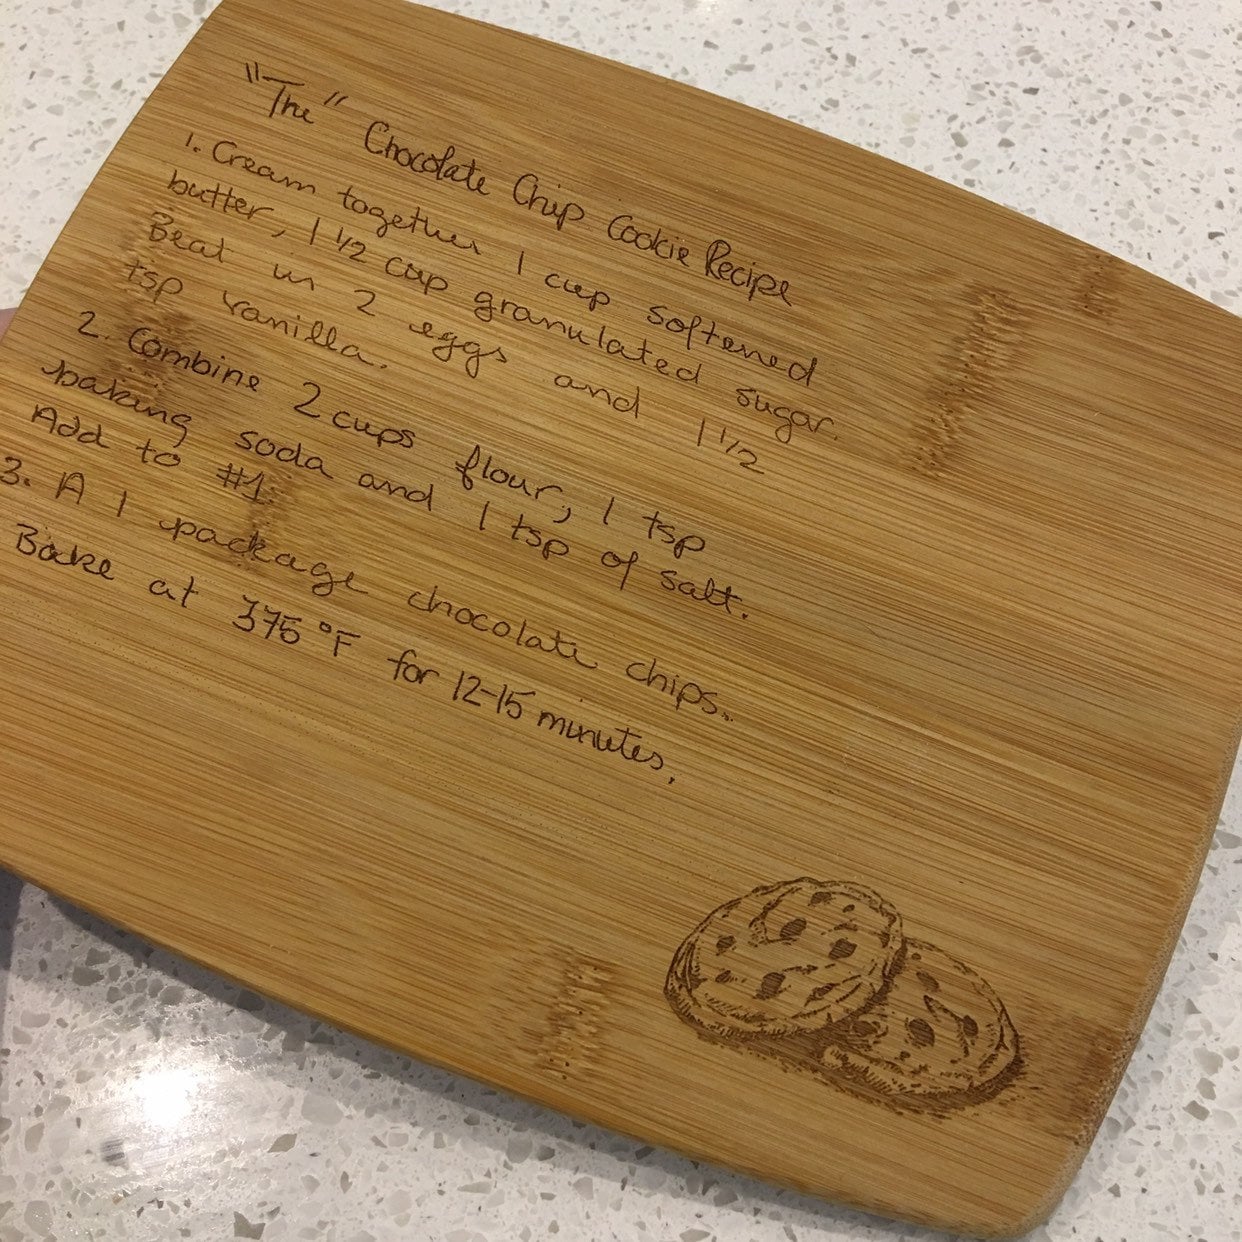 "The" Chocolate Chip Cookie Recipe
1. Cream together 1 cup softened
butter, 1 1/2 cup granulated sugar.
Beat in 2 eggs and 1 1/2
tsp vanilla.
2. Combine 2 cups flour, 1 tsp
baking soda and 1 tsp of salt.
Add to #1.
3. A 1 package chocolate chips.
Bake at 375 °F for 12-15 minutes.